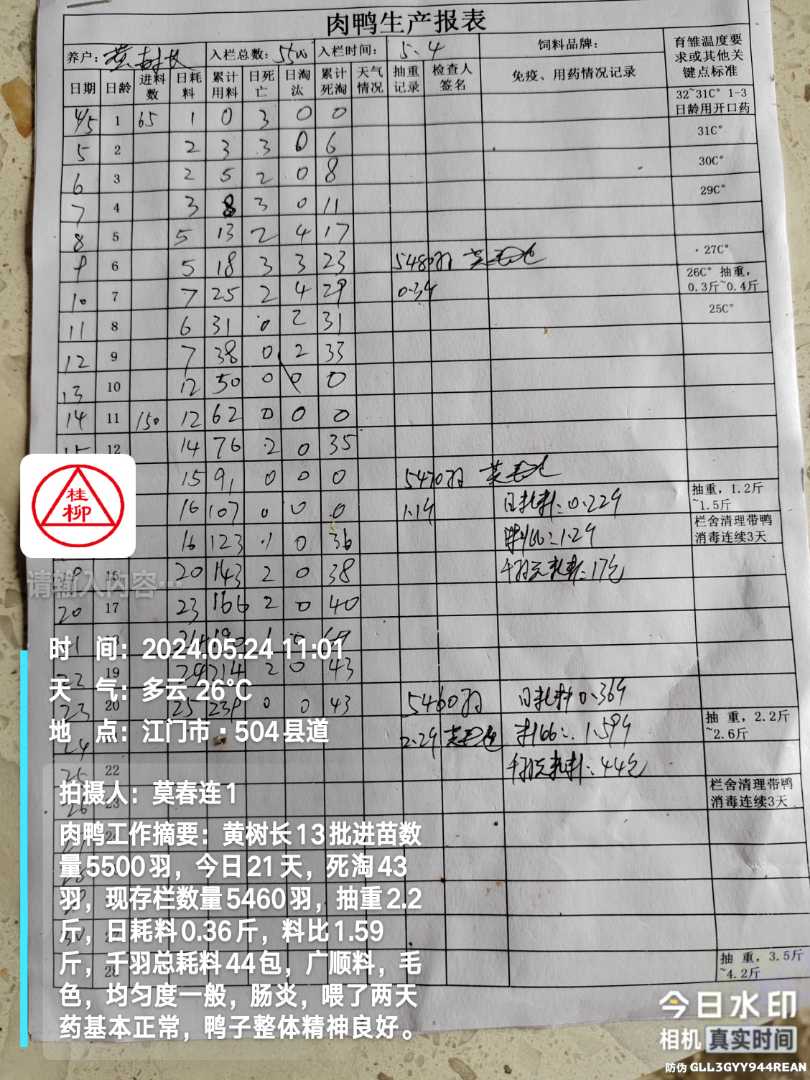 肉鸭生产报表
养户: 黄树长 入栏总数: 5500 入栏时间: 5.4 饲料品牌: 育雏温度要求或其他关键点标准
日期 日龄 进料数 日耗料 累计用料 日死亡 日淘汰 累计死淘 天气情况 抽重记录 检查人签名 免疫、用药情况记录
4/5 1 65 1 0 3 0 0 32~31C° 1-3日龄用开口药
5 2 2 3 3 0 6 31C°
6 3 2 5 2 0 8 30C°
7 4 3 8 3 0 11 29C°
8 5 5 13 2 4 17
9 6 5 18 3 3 23 5480羽 ·27C°
10 7 7 25 2 4 29 0.34 26C° 抽重,0.3斤~0.4斤
11 8 6 31 0 2 31 25C°
12 9 7 38 0 2 33
13 10 12 50 0 0 0
14 11 150 12 62 0 0 0
15 12 14 76 2 0 35
15 91 0 0 0 5470羽 抽重,1.2斤~1.5斤
16 107 0 0 0 1.1斤 日耗料:0.22斤 栏舍清理带鸭消毒连续3天
16 123 1 0 36 料比:1.29
20 143 2 0 38 千羽总耗料:17包
20 17 23 166 2 0 40
19 214 2 0 43
23 20 25 239 0 0 43 5460羽 日耗料0.36斤
2.2斤 料比:1.59 抽 重,2.2斤~2.6斤
22 千羽总耗料:44包
栏舍清理带鸭消毒连续3天
28 抽 重,3.5斤~4.2斤
桂柳
请输入内容…
时 间:2024.05.24 11:01
天 气:多云 26℃
地 点:江门市·504县道
拍摄人:莫春连1
肉鸭工作摘要:黄树长13批进苗数
量5500羽,今日21天,死淘43
羽,现存栏数量5460羽,抽重2.2
斤,日耗料0.36斤,料比1.59
斤,千羽总耗料44包,广顺料,毛
色,均匀度一般,肠炎,喂了两天
药基本正常,鸭子整体精神良好。
今日水印
相机 真实时间
防伪 GLL3GYY944REAN